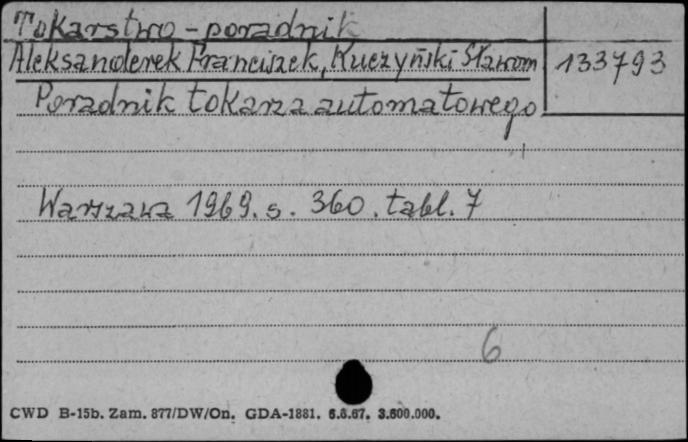 Tokarstwo - poradnik
Aleksanderek Franciszek, Kuczyński Sławom
133793
Poradnik tokarza automatowego
Warszawa 1969. s. 360. tabl. 7
6
CWD B-15b. Zam. 877/DW/On. GDA-1881. 6.6.67. 3.600.000.